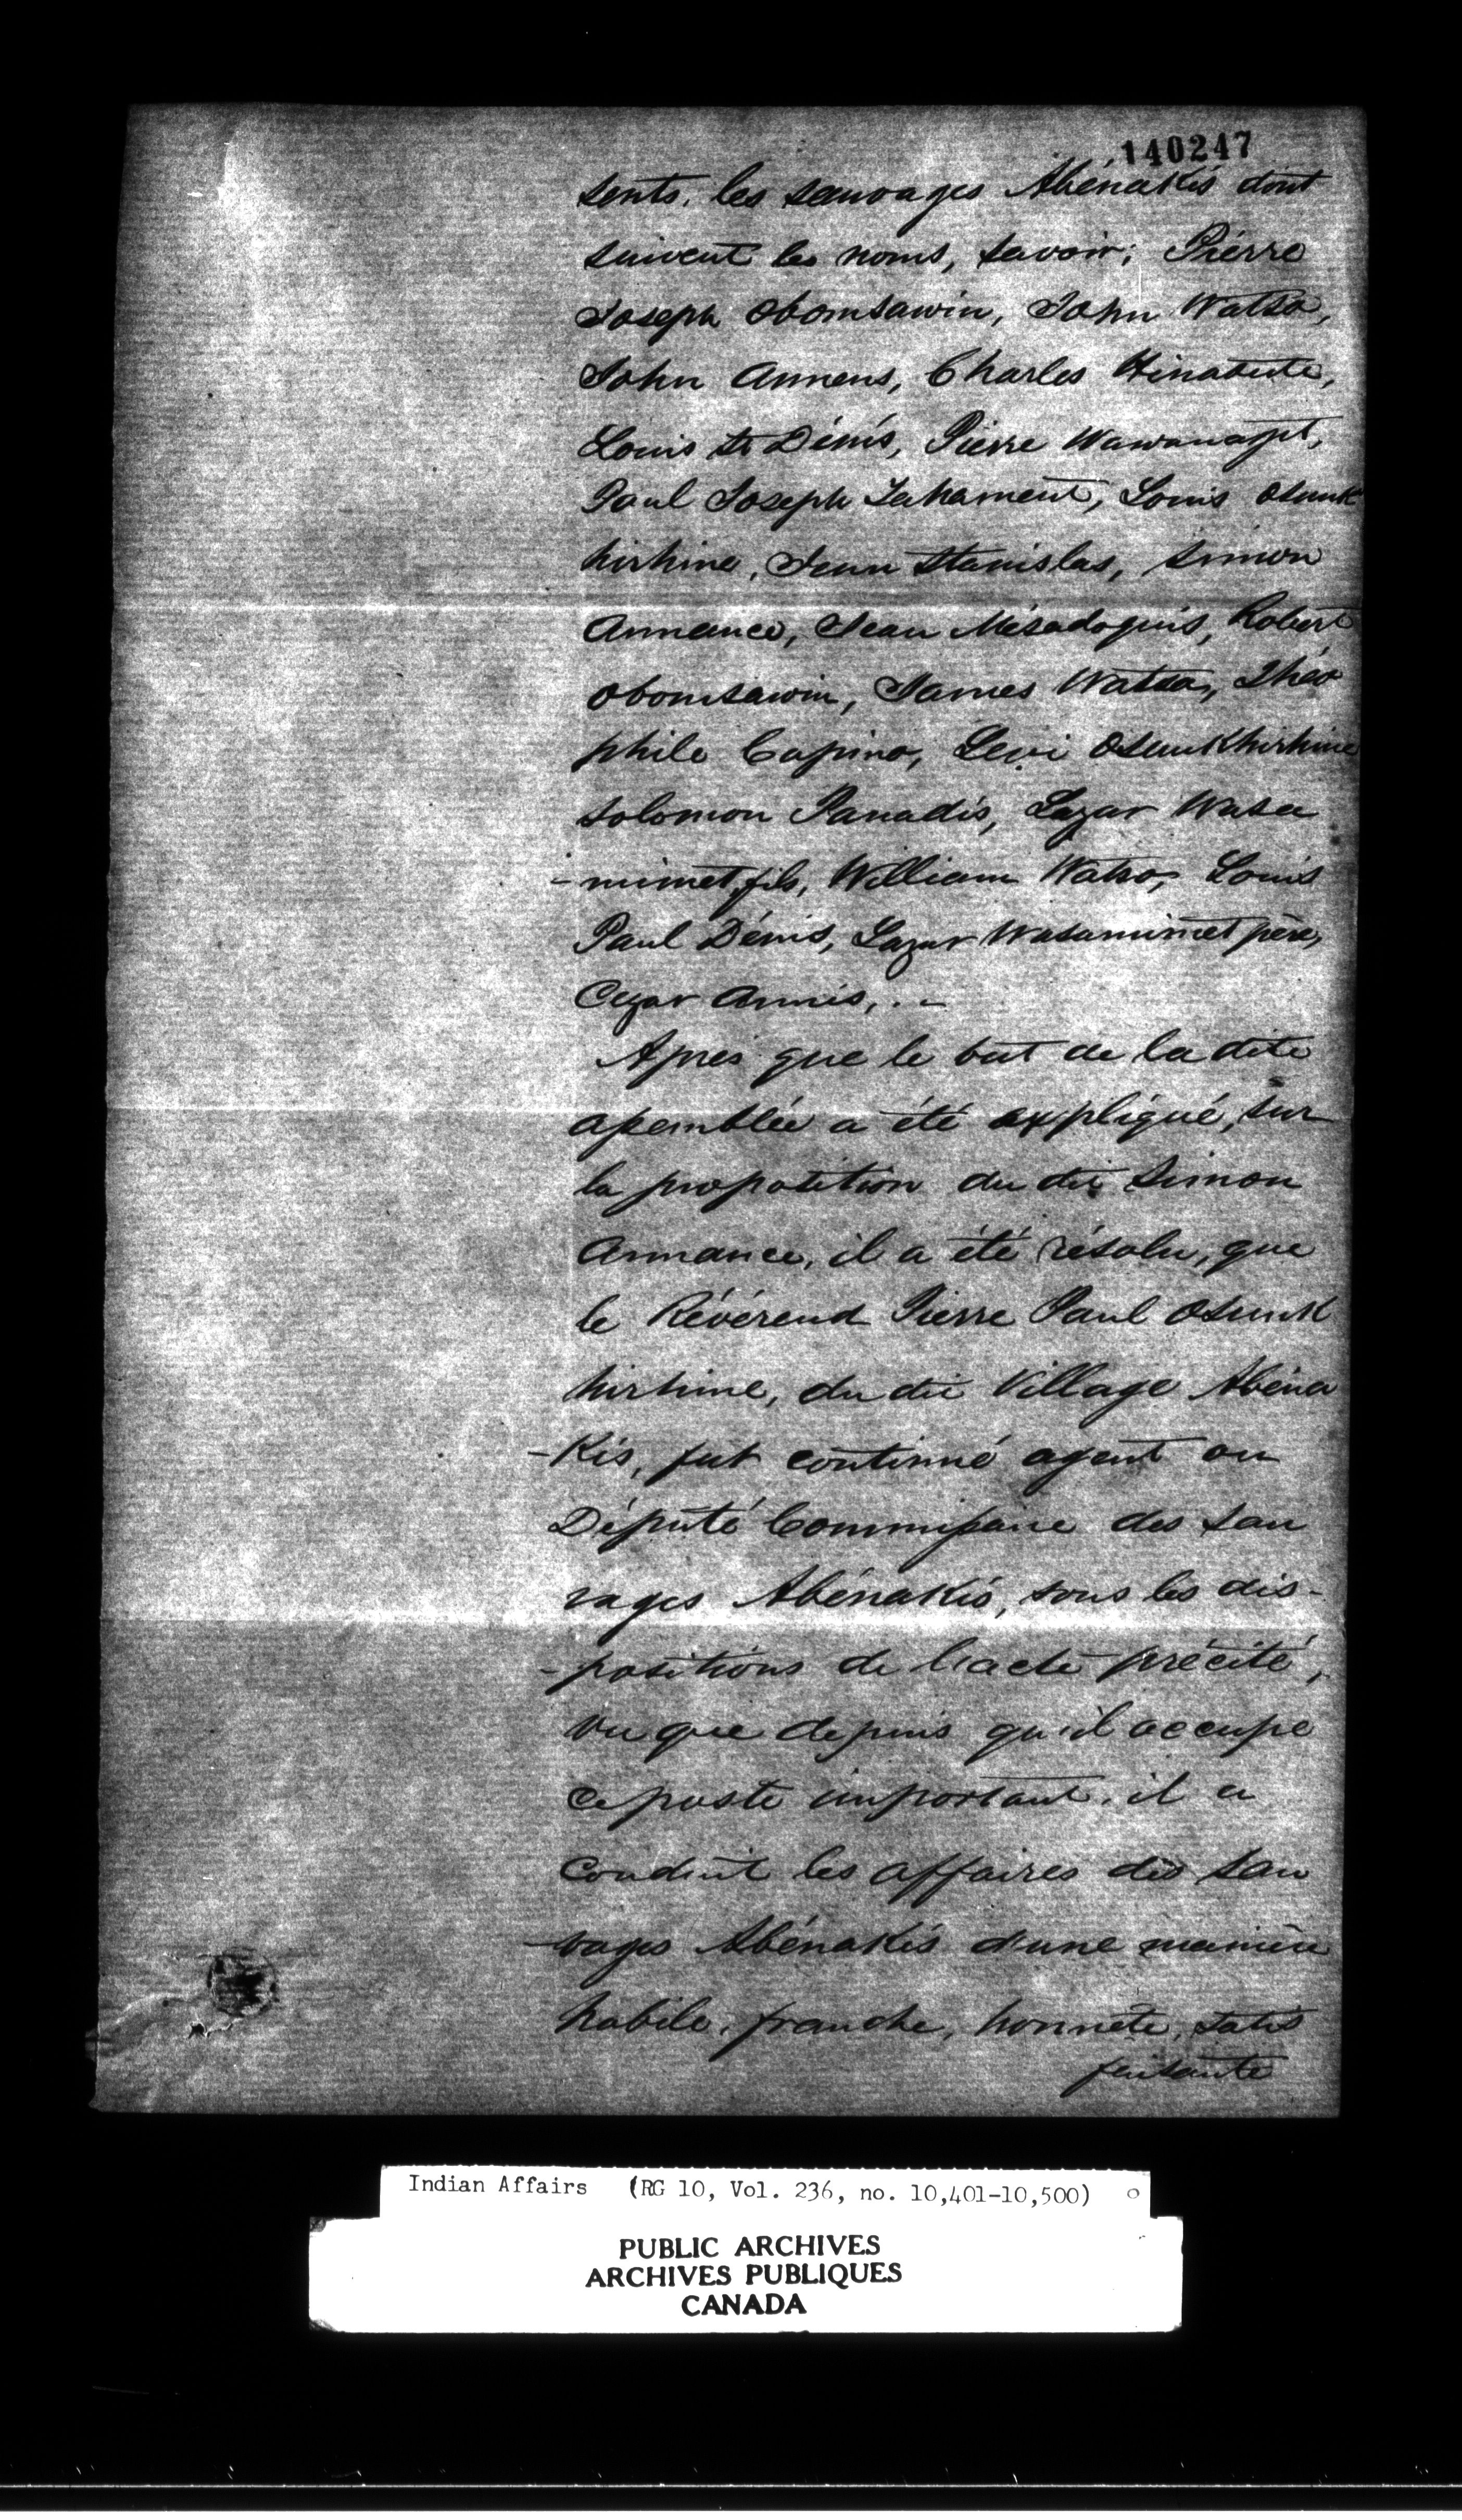 140247
sents, les sauvages Abénakis dont
suivent les noms, savoir; Pierre
Joseph Obomsawin, John Watso,
John Annens, Charles
Louis St Dénis, Pierre Wawanaget,
Paul Joseph Tahament, Louis Osunk
hirhine, Jean Stanislas, Simon
Annance, Jean Mésadoquis, Robert
Obomsawin, James Watso, Théo
phile Capino, Levi Osunkhirhine
Solomon Panadis, Lazar Wasa
-mimet, fils, William Watso, Louis
Paul Dénis, Lazar Wasamimet père,
Cezar Annis, . -
Après que le but de la dite
assemblée a été expliqué, sur
la proposition du dit Simon
Annance, il a été résolu, que
le Révérend Pierre Paul Osunk
hirhine, du dit Village Abéna
-kis, fut continué agent ou
Député Commissaire des sau
vages Abénakis, sous les dis-
-positions de l'acte précité,
vu que depuis qu'il occupe
ce poste important, il a
conduit les affaires des sau
-vages Abénakis d'une manière
habile, franche, honnête, satis
faisante
Indian Affairs (RG 10, Vol. 236, no. 10,401-10,500)
PUBLIC ARCHIVES
ARCHIVES PUBLIQUES
CANADA